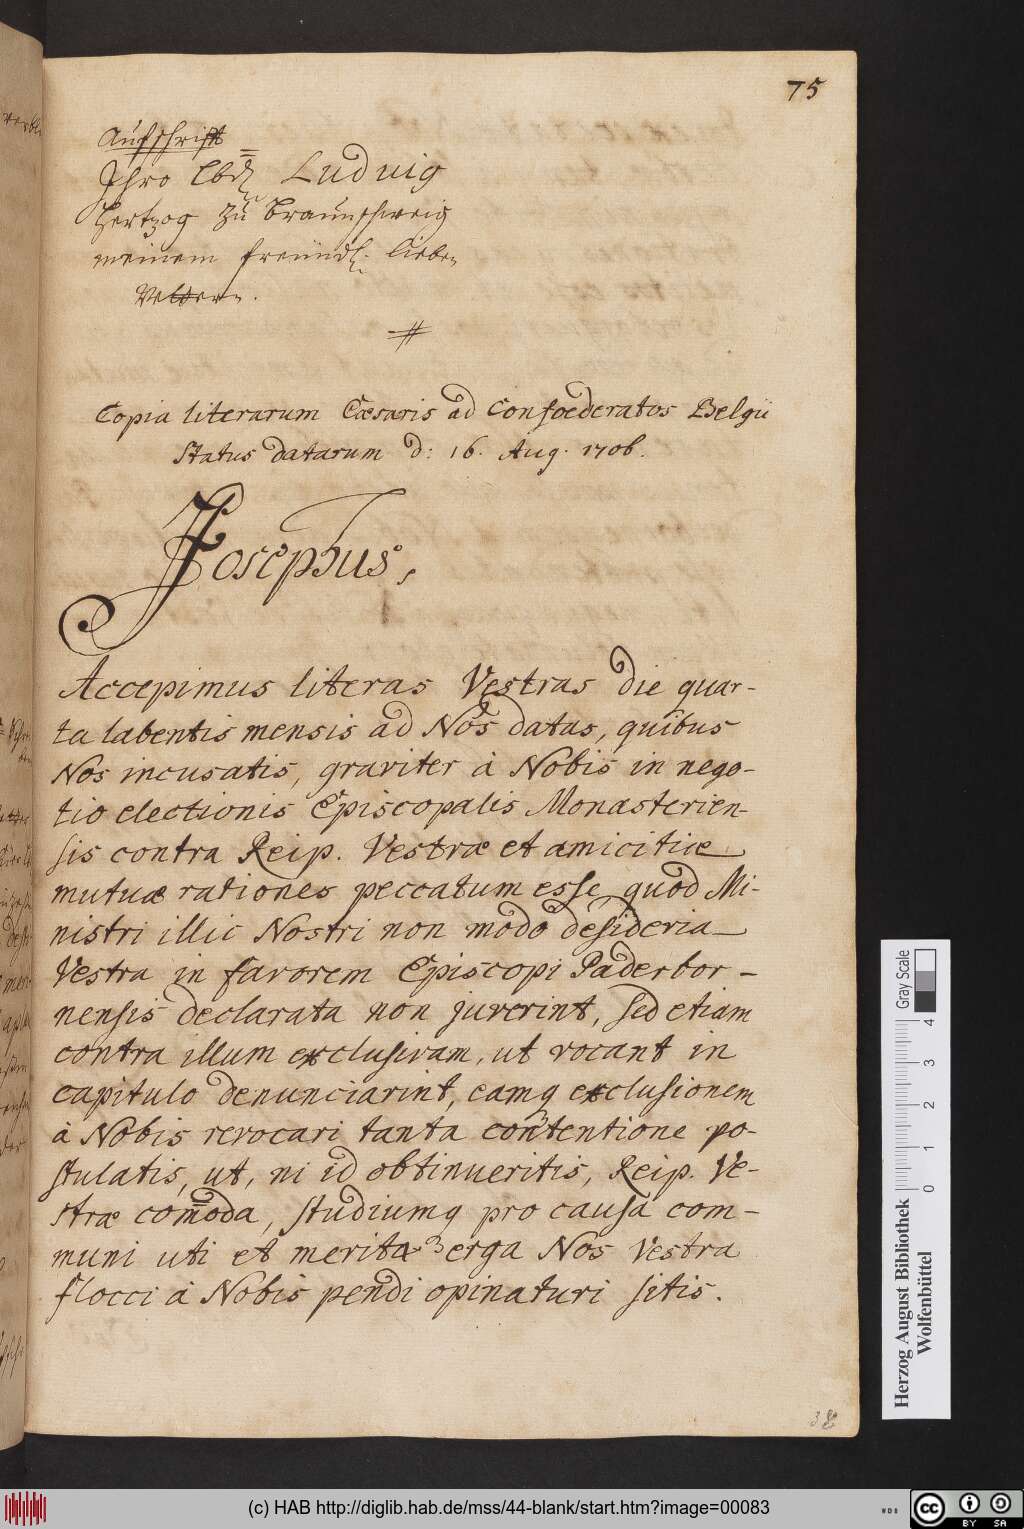 75
Aufschrifft
Ihro Lbd. Ludwig
Hertzog zu Braunschweig
meinem freündl. lieben
Vettern.
Copia literarum Cæsaris ad Confoederatos Belgii
Status datarum d: 16. Aug. 1706.
Josephus,
Accepimus literas Vestras die quar-
ta labentis mensis ad Nos datas, quibus
Nos incusatis, graviter à Nobis in nego-
tio electionis Episcopalis Monasterien-
sis contra Reip. Vestræ et amicitiæ
mutuæ rationes peccatum esse, quod Mi-
nistri illic Nostri non modo desideria
Vestra in favorem Episcopi Paderbor-
nensis declarata non juverint, sed etiam
contra illum exclusivam, ut vocant in
capitulo denunciarint, eamq exclusionem
à Nobis revocari tanta contentione po-
stulatis, ut, ni id obtinueritis, Reip. Ve-
stræ com̄oda, studiumq pro causa com-
muni uti et merita erga Nos Vestra
flocci à Nobis pendi opinaturi sitis.
Gray Scale
0 1 2 3 4
Herzog August Bibliothek
Wolfenbüttel
(c) HAB http://diglib.hab.de/mss/44-blank/start.htm?image=00083
WDB
cc BY SA